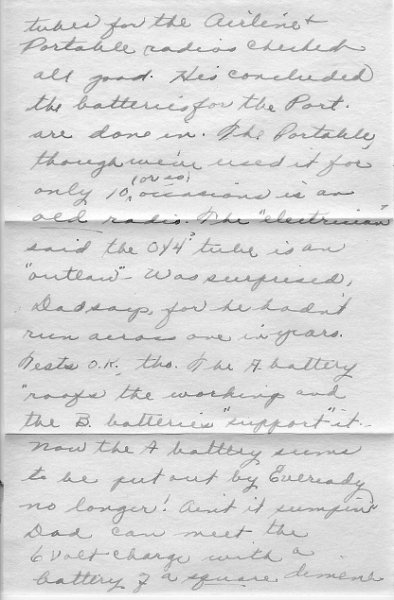 tubes for the Airline &
Portable radios checked
all good. He's concluded
the batteries for the Port.
are done in. The Portable,
though we've used it for
only 10 (or so) occasions is an
old radio. The "electrician"
said the OY4 tube is an
"outlaw" - Was surprised,
Dad says, for he hadn't
run across one in years.
Tests O.K., tho. The A. battery
the working and
the B. batteries "support" it.
Now the A battery seems
to be put out by Eveready
no longer! Ain't it sumpin'
Dad can meet the
6 volt charge with a
battery of a square dimen